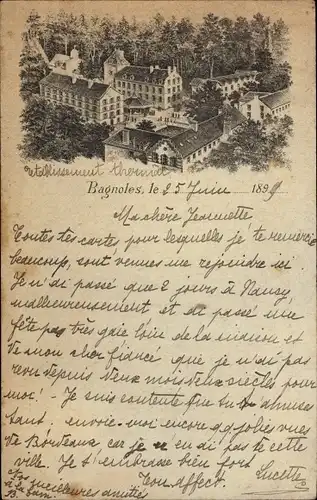 etablissement thermal
Bagnoles, le 25 Juin 1899
Ma chère Jeannette
Toutes tes cartes, pour lesquelles je te remercie
beaucoup, sont venues me rejoindre ici
Je n'ai passé que 2 jours à Nancy,
malheureusement et ai passé une
fête pas très gaie loin de la maison et
de mon cher fiancé que je n'ai pas
revu depuis deux mois deux siècles pour
moi! Je suis contente que tu t'amuses
tant, envoie-moi encore qq jolies vues
de Bordeaux car je n'en ai pas de cette
ville. Je t'embrasse bien fort
Ton affect. Lucette
meilleures amitiés
à la
B. Sam.